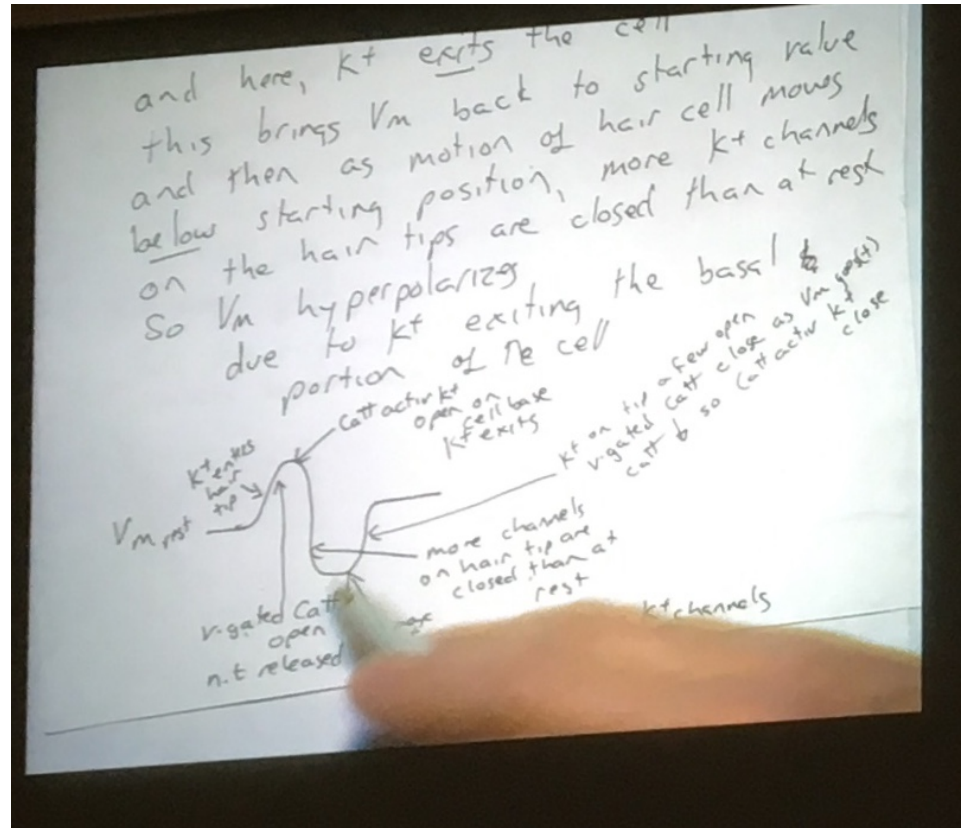 and here, K+ exits the cell
this brings Vm back to starting value
and then as motion of hair cell moves
below starting position, more K+ channels
on the hair tips are closed than at rest
So Vm hyperpolarizes
due to K+ exiting the basal
portion of the cell
Ca++ activ K+
open on
cell base
K+ exits
K+ enters
hair
tip
Vm rest
K+ on tip a few open
v-gated Ca++ close as Vm goes(+)
Ca++ ↓ so Ca++ activ K+
close
more channels
on hair tip are
closed than at
rest
v-gated Ca++
open
n.t released
K+ channels